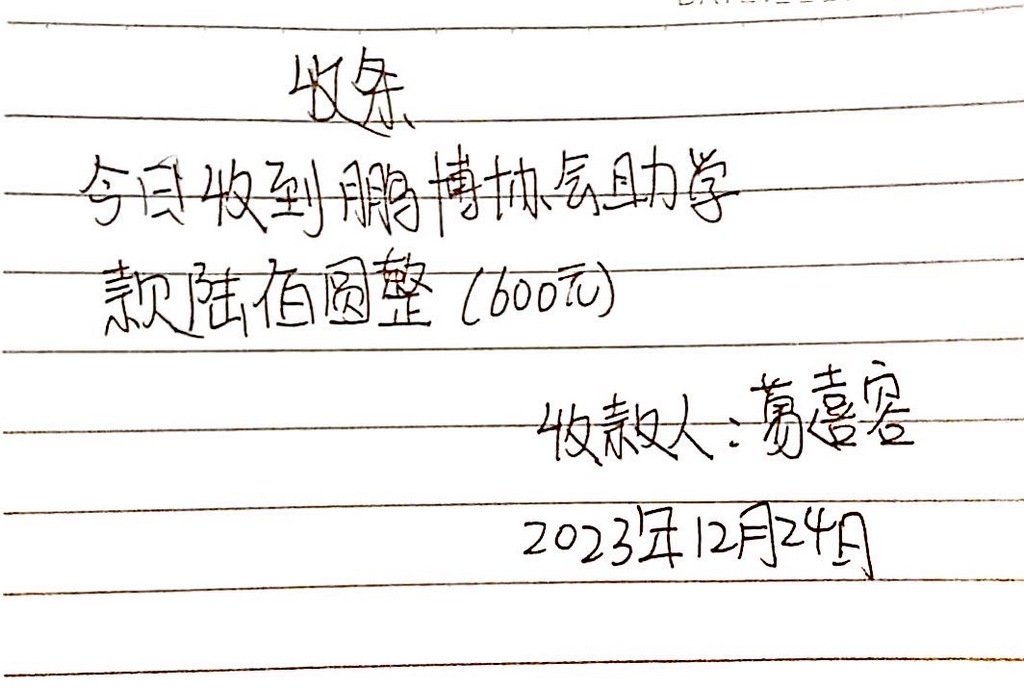 收条
今日收到鹏博协会助学
款陆佰圆整(600元)
收款人:葛喜容
2023年12月24日